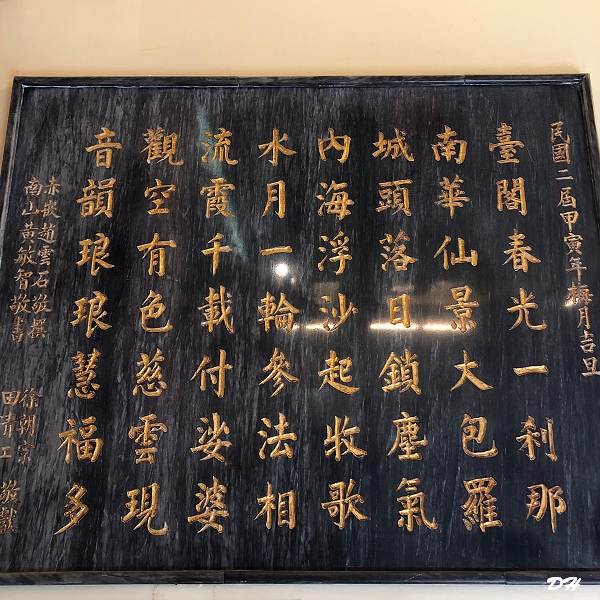 民國二屆甲寅年梅月吉旦
臺閣春光一剎那
南華仙景大包羅
城頭落日鎖塵氣
內海浮沙起收歌
水月一輪參法相
流霞千載付娑婆
觀空有色慈雲現
音韻琅琅慧福多
赤嵌趙雲石敬撰
南山黃敏智敬書
徐朝
田青工敬獻
DH